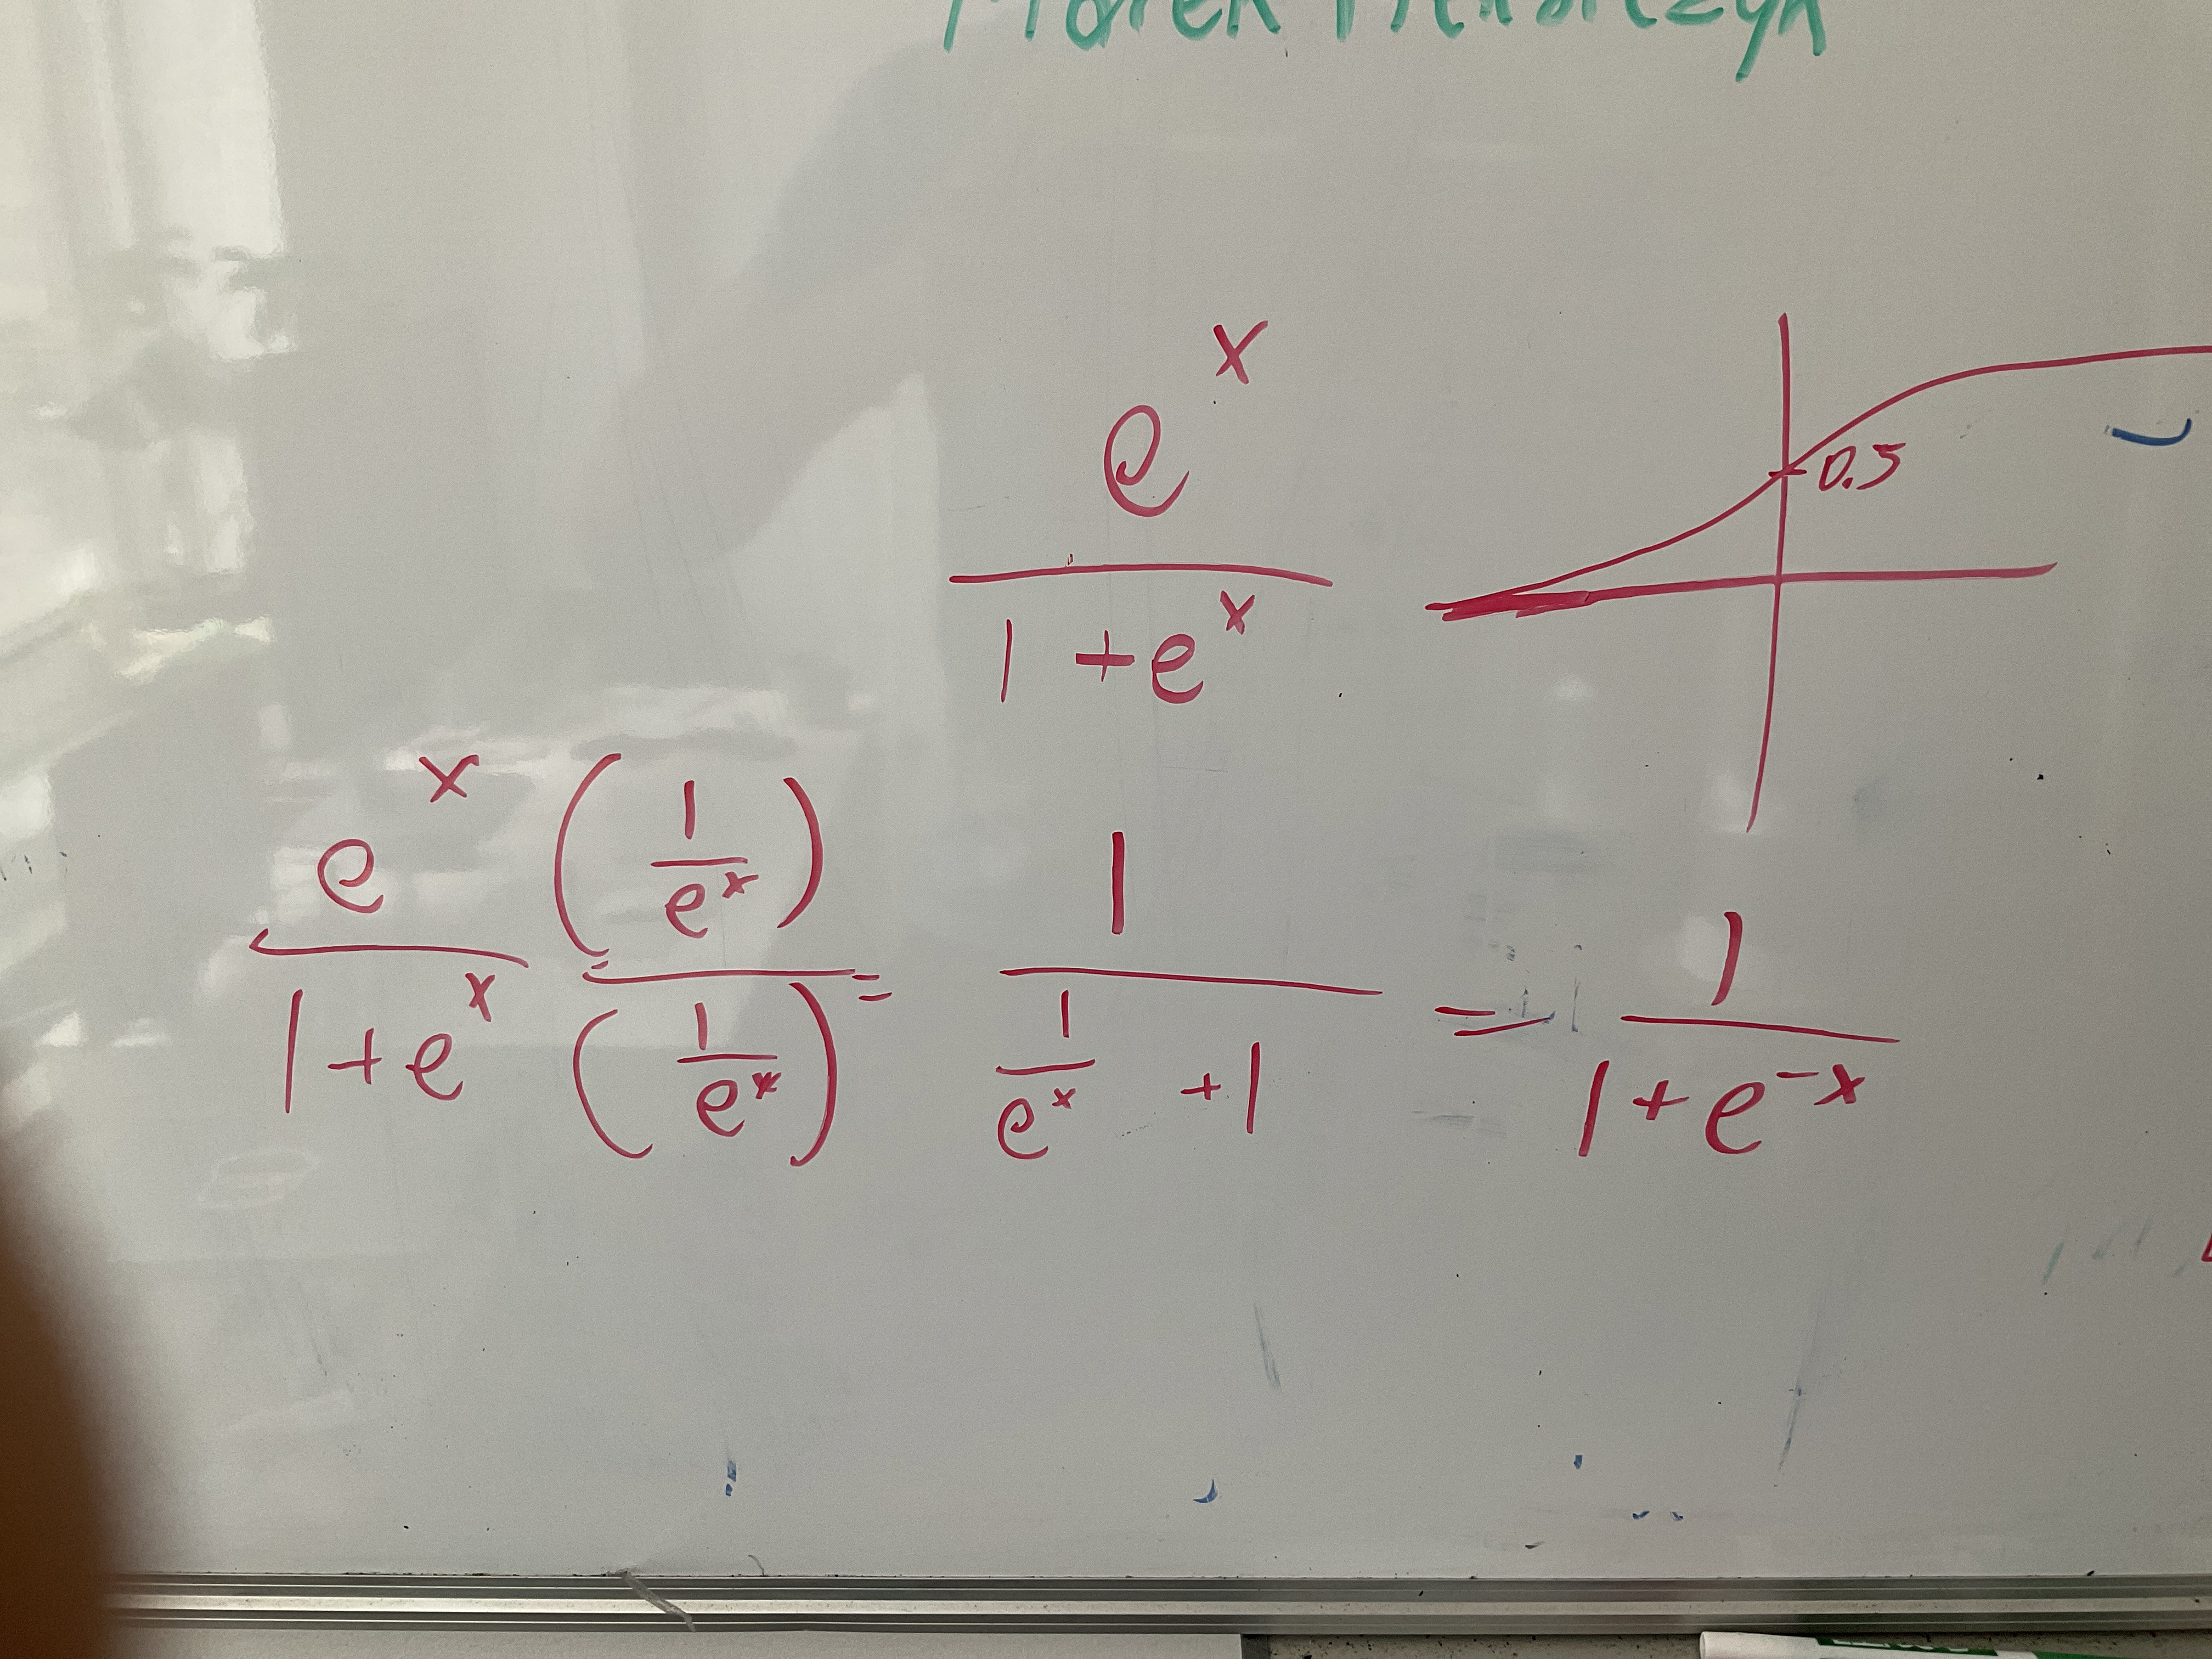 Marek
e^x / (1 + e^x)
0.5
e^x / (1 + e^x) (1 / e^x) / (1 / e^x) = 1 / (1 / e^x + 1) = 1 / (1 + e^-x)